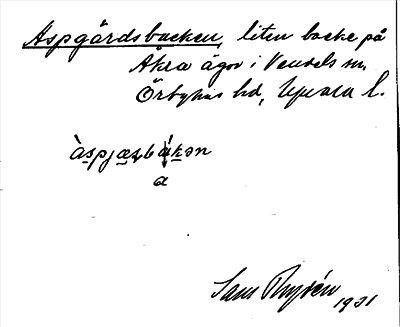 Aspgårdsbacken, liten backe på
Åkra ägor i Vendels sn,
Örbyhus hd, Uppsala l.
àspjæʂbákən
a
Sam Thyrén
1921